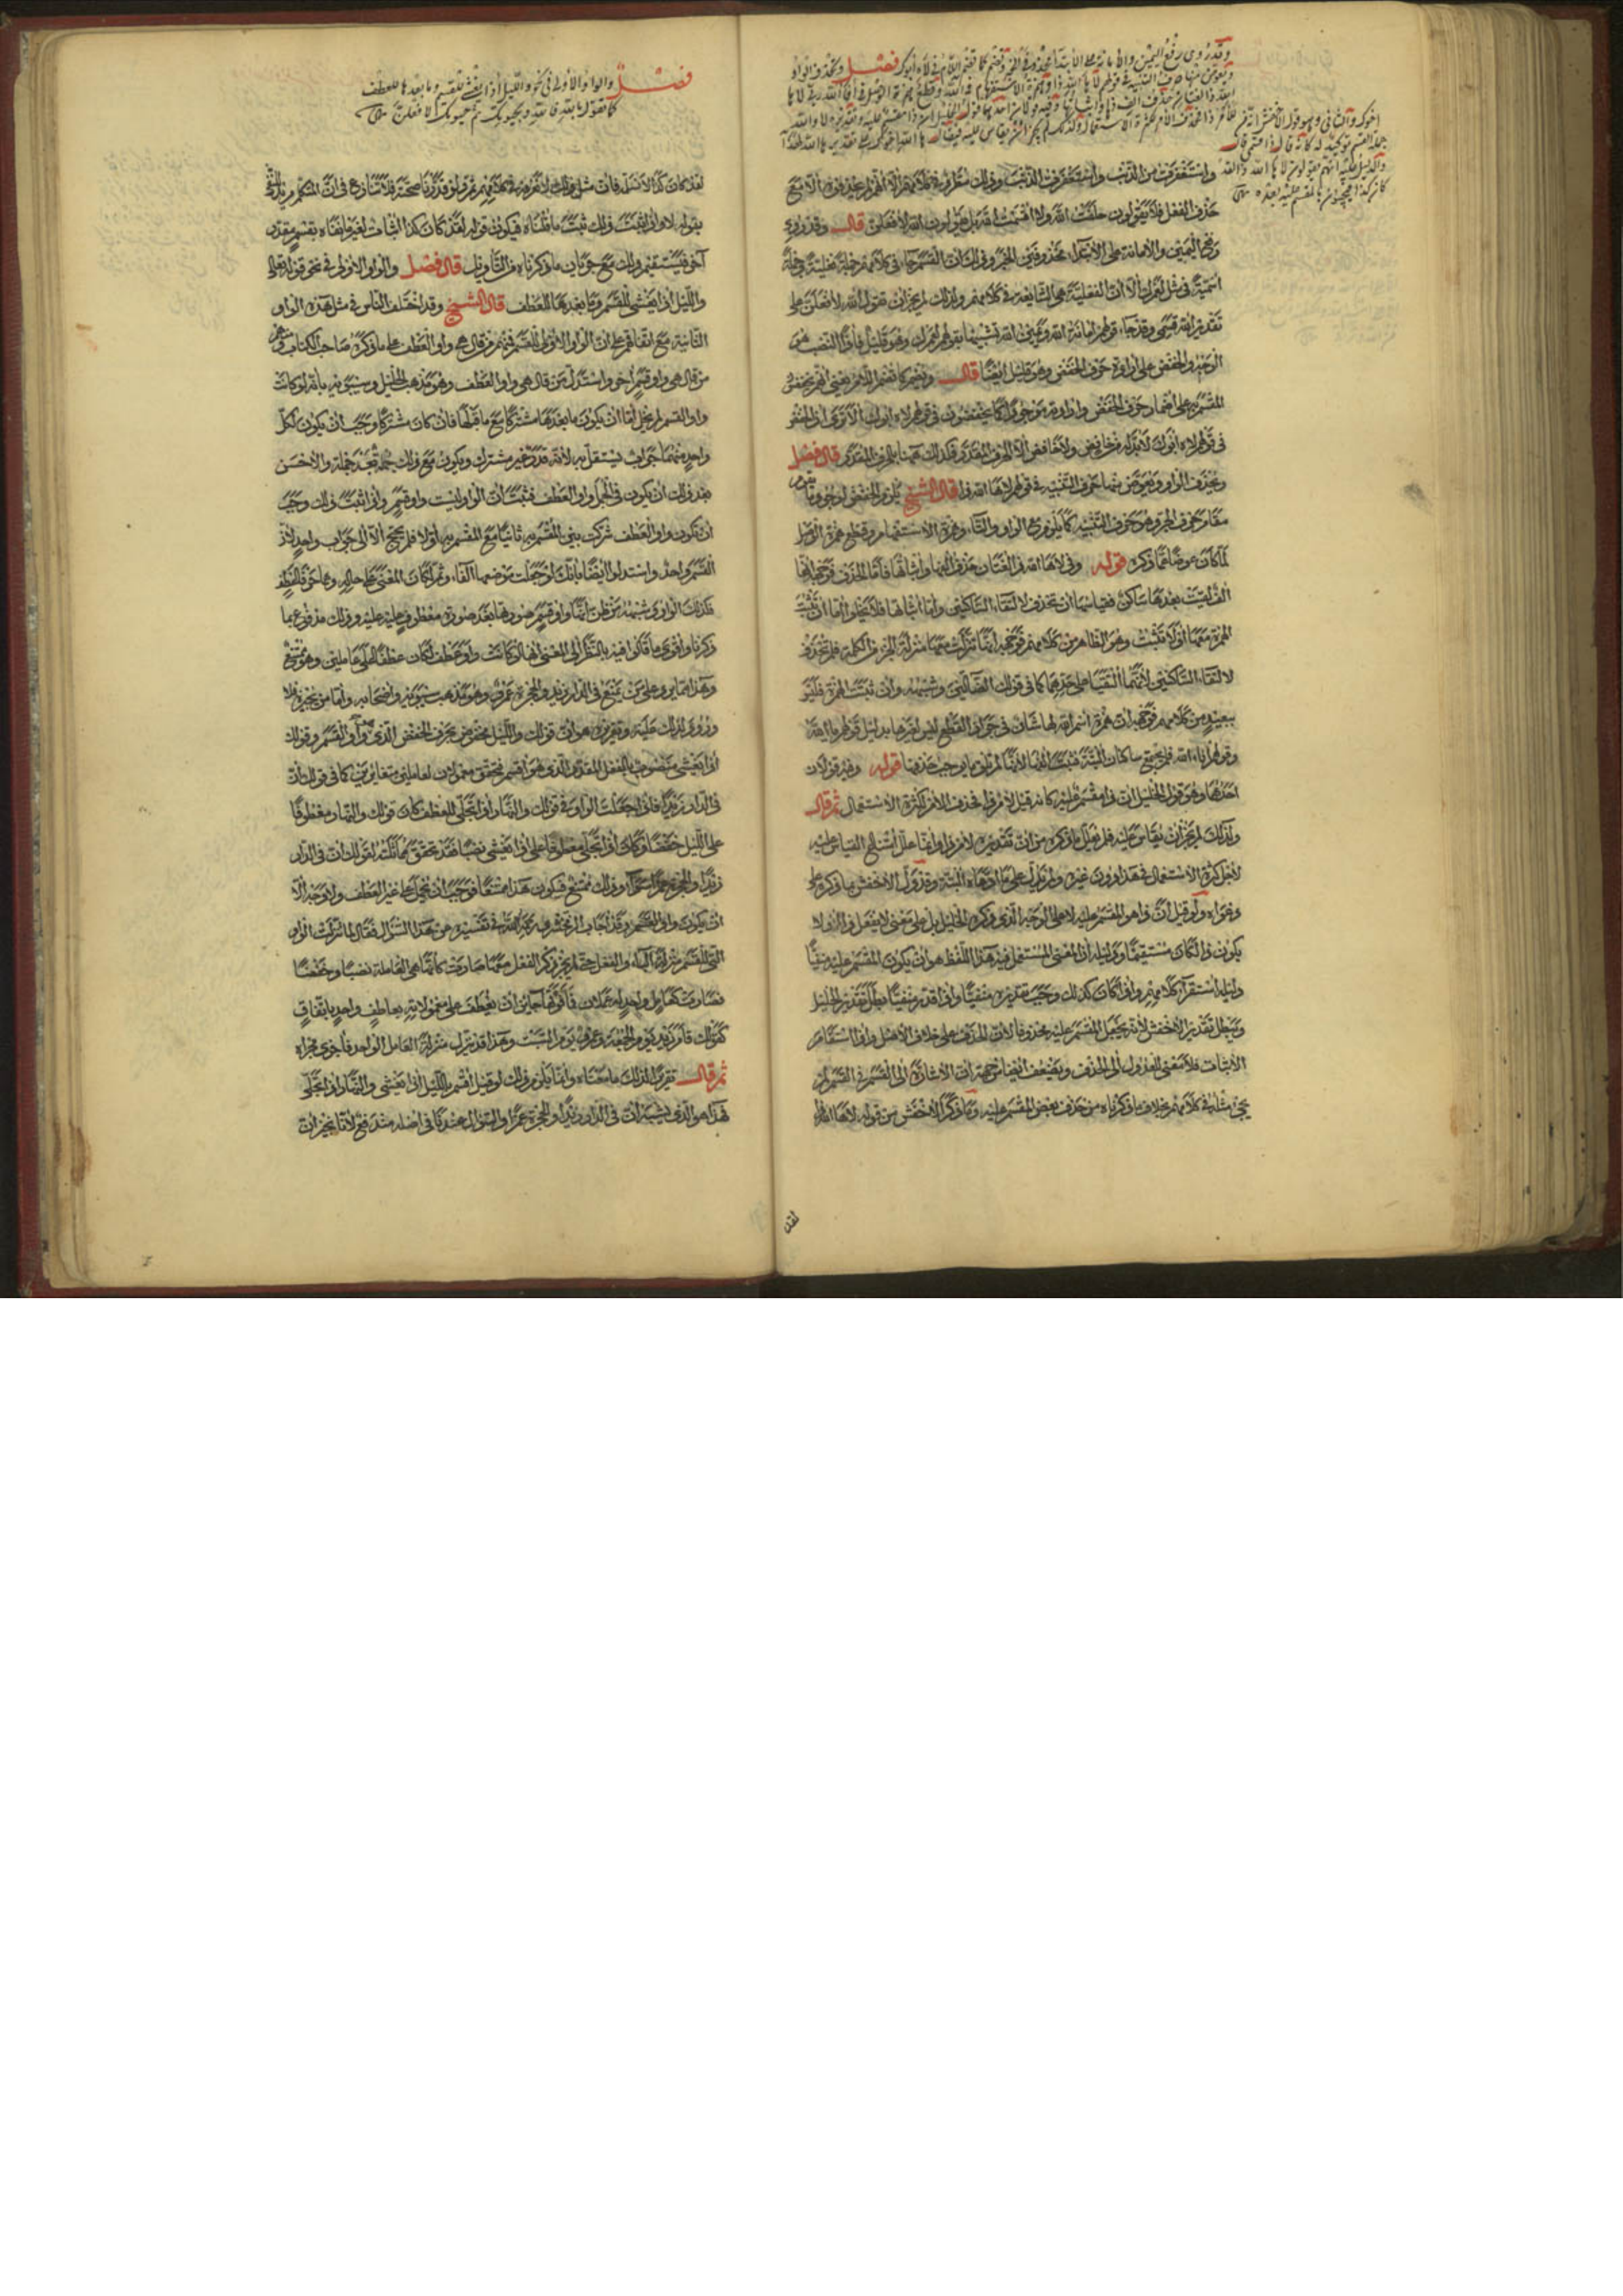 وقد روي رفع اليمين والأمانة على الابتداء محذوفي الخبر وتضمر كما تضمر اللام في لاه أبوك فصل وتحذف الواو
ويعوض منها حرف التنبيه في قولهم لا ها الله ذا وهمزة الاستفهام في آلله وقطع همزة الوصل في أفألله وفي لا ها
الله ذا لغتان حذف ألف ها وإثباتها وفيه قولان أحدهما قول الخليل أن ذا مقسم عليه وتقديره لا والله
للأمر ذا فحذف الأمر لكثرة الاستعمال ولذلك لم يجز أن يقاس عليه فيقال ها الله أخوك على تقدير ها الله لهذا
أخوك والثاني وهو قول الأخفش أنه من
جملة القسم توكيد له كأنه قال ذا قسمي قال
والدليل عليه أنهم يقولون لا ها الله ذا لقد
كان كذا فيجيئون بالمقسم عليه بعده
واستغفرت من الذنب واستغفرت الذنب وذلك معلوم في كلامهم إلا أنهم لم يحذفوه إلا مع
حذف الفعل فلا يقولون حلفت الله ولا أقسمت الله بل يقولون الله لأفعلن قال وقد روي
رفع اليمين والأمانة على الابتداء محذوفين الخبر وذلك أن القسم جاء في كلامهم جملة فعلية وجملة
اسمية في مثل لعمرك إلا أن الفعلية هي الشايعة في كلامهم ولذلك لم يجز أن تقول الله لأفعلن على
تقدير الله قسمي وقد جاء قولهم أمانة الله ويمين الله تشبيها بقولهم لعمرك وهو قليل فإذا النصب هو
الوجه والخفض على إرادة حرف الخفض وهو قليل أيضا قال وتضمر كما تضمر اللام يعني أنهم يخفضون
المقسم به على إضمار حرف الخفض وإرادته موجودا كما يخفضون في قولهم لاه أبوك ألا ترى أن الخفض
في قولهم لاه أبوك لا بد له من خافض ولا خافض إلا الحرف المقدر فكذلك ههنا بالحرف المقدر قال فصل
وتحذف الواو ويعوض منها حرف التنبيه في قولهم لاها الله ذا قال الشيخ يلزم الخفض لوجود ما يقوم
مقام حرف الجر وهو حرف التنبيه كما يلزم مع الواو والتاء وهمزة الاستفهام وقطع همزة الوصل
لما كان عوضا عما ذكره قوله وفي لاها الله ذا لغتان حذف ألف ها وإثباتها فأما الحذف فوجهه أنها
ألف لقيت بعدها ساكن فقياسها أن تحذف لالتقاء الساكنين وأما إثباتها فلا يخلو إما أن تثبت
الهمزة معها أو لا تثبت وهو الظاهر من كلامهم فوجهه أنها تنزلت معها منزلة الجزء من الكلمة فلم تحذف
لالتقاء الساكنين لأنهما التقيا على حدهما كما في قولك الضالين وشبهه وإن ثبتت الهمزة فليس
ببعيد من كلامهم فوجهه أن همزة اسم الله لها شأن في جواز القطع ليس لغيرها بدليل قولهم يا ألله
وقولهم أفألله فلم يجتمع ساكنان البتة فثبتت ألف ها لأنها لم تلق ما يوجب حذفها قوله وفيه قولان
أحدهما وهو قول الخليل أن ذا مقسم عليه كأنه قيل للأمر ذا فحذف الأمر لكثرة الاستعمال ثم قال
ولذلك لم يجز أن يقاس عليه فلم يعلل ما ذكره من أن تقديره للأمر ذا وإنما علل امتناع القياس عليه
لأجل كثرة الاستعمال في هذا دون غيره ولم يدل على ما ادعاه البتة وقد أول الأخفش ما ذكره على
دعواه ولو قيل إن ذا هو المقسم عليه لا على الوجه الذي ذكره الخليل بل على معنى لا يفعل ذا أو لا
يكون ذا لكان مستقيما ودليله أن المعنى المستعمل فيه هذا اللفظ هو أن يكون المقسم عليه منفيا
دليله استقراء كلامهم وإذا كان كذلك وجب تقديره منفيا وإذا قدر منفيا بطل تقدير الخليل
ويبطل تقدير الأخفش لأنه يجعل المقسم عليه محذوفا لأن الحذف على خلاف الأصل وإذا استقام
الإثبات فلا معنى للعدول إلى الحذف ويضعف أيضا من جهة أن الإشارة إلى القسم في القسم لم
يجئ مثله في كلامهم بخلاف ما ذكرناه من حذف بعض المقسم عليه وما ذكر الأخفش من قوله لاها الله ذا
لقد
فصل والواو الأولى في نحو والليل إذا يغشى للقسم وما بعدها للعطف
كما تقول بالله فالله وبحيوتك ثم حيوتك لأفعلن
لقد كان كذا لا نسلم فإن مثل ذلك لا نعرفه في كلامهم ثم ولو قدرنا صحته فلا تنازع في أن المتكلم يريد النفي
بقوله لاه وإذا ثبت ذلك ثبت ما قلناه فيكون قوله لقد كان كذا إثبات لغير ما نفاه بقسم مقدر
آخر فيستقيم ذلك مع جريان ما ذكرناه من التأويل قال فصل والواو الأولى في نحو قوله تعالى
والليل إذا يغشى للقسم وما بعدها للعطف قال الشيخ وقد اختلف الناس في مثل هذه الواو
الثانية مع اتفاقهم على أن الواو الأولى للقسم فمنهم من قال هي واو العطف على ما ذكره صاحب الكتاب ومنهم
من قال هي واو قسم أخر واستدل من قال هي واو العطف وهو مذهب الخليل وسيبويه بأنه لو كانت
واو القسم لم يخل إما أن يكون ما بعدها مشتركا مع ما قبلها فإن كان مشتركا وجب أن يكون لكل
واحد منهما جواب يستقل به لأنه قدر غير مشترك ويكون مع ذلك جملة بعد جملة والأحسن
بعد ذلك أن يكون في الجمل واو العطف فثبت أن الواو ليست واو قسم وإذا ثبت ذلك وجب
أن تكون واو العطف شركت بين المقسم به ثانيا مع المقسم به أولا فلم يحتج إلا إلى جواب واحد لأن
القسم واحد واستدلوا أيضا بأنك لو جعلت موضعها الفاء وثم لكان المعنى على حاله وهما حرفا عطف
فكذلك الواو
ذكرنا وأقوى ما قالوا فيه بالنظر إلى المعنى أنها لو كانت واو عطف لكان عطفا على عاملين وهو ممتنع
وهذا إنما يرد على من يمنع في الدار زيد والحجرة عمرو وهو مذهب سيبويه وأصحابه وأما من يجيزه فلا
ورود لذلك عليه وتقريره هو أن قولك والليل مخفوض بحرف الخفض الذي هو واو القسم وقولك
إذا يغشى منصوب بالفعل المقدر الذي هو أقسم فتحقق معمولان لعاملين متغايرين كما في قولك إن
في الدار زيدا فإذا جعلت الواو في قولك والنهار إذا تجلى للعطف كان قولك والنهار معطوفا
على الليل خفضا وكان إذا تجلى معطوفا على إذا يغشى نصبا فقد تحقق مماثلته لقولك إن في الدار
زيدا والحجرة عمرا سواء وذلك ممتنع فيكون هذا ممتنعا فوجب أن تحمل على غير العطف ولا وجه إلا
أن يكون واو القسم وقد أجاب الزمخشري رحمه الله في تفسيره عن هذا السؤال فقال لما تنزلت الواو
التي للقسم منزلة الباء والفعل حتى لم يجز ذكر الفعل معها صارت كأنها هي العاملة نصبا وخفضا
فصارت كعامل واحد له عملان فكأنها حينئذ أن يعطف على معموليه بعاطف واحد باتفاق
كقولك قام زيد يوم الجمعة وعمرو يوم السبت وهذا قد تنزل منزلة العامل الواحد فأجري مجراه
ثم قال تقريرا لذلك ما معناه وإنما يلزم ذلك لو قيل أقسم بالليل إذا يغشى والنهار إذا تجلى
فهذا هو الذي يشبه إن في الدار زيدا والحجرة عمرا والسؤال عندنا في أصله مندفع لأنا نجيز إن